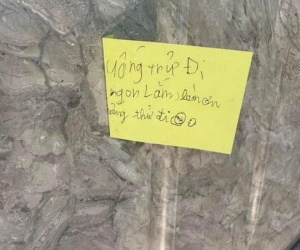 uống thử Đi
ngon Lắm, làm ơn
uống thử đi